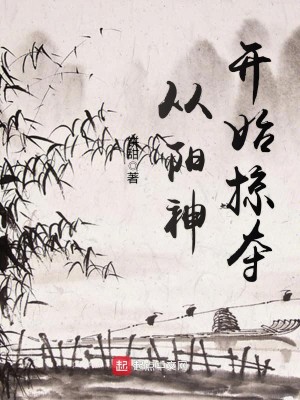 从阳神
开始掠夺
著
起点中文网